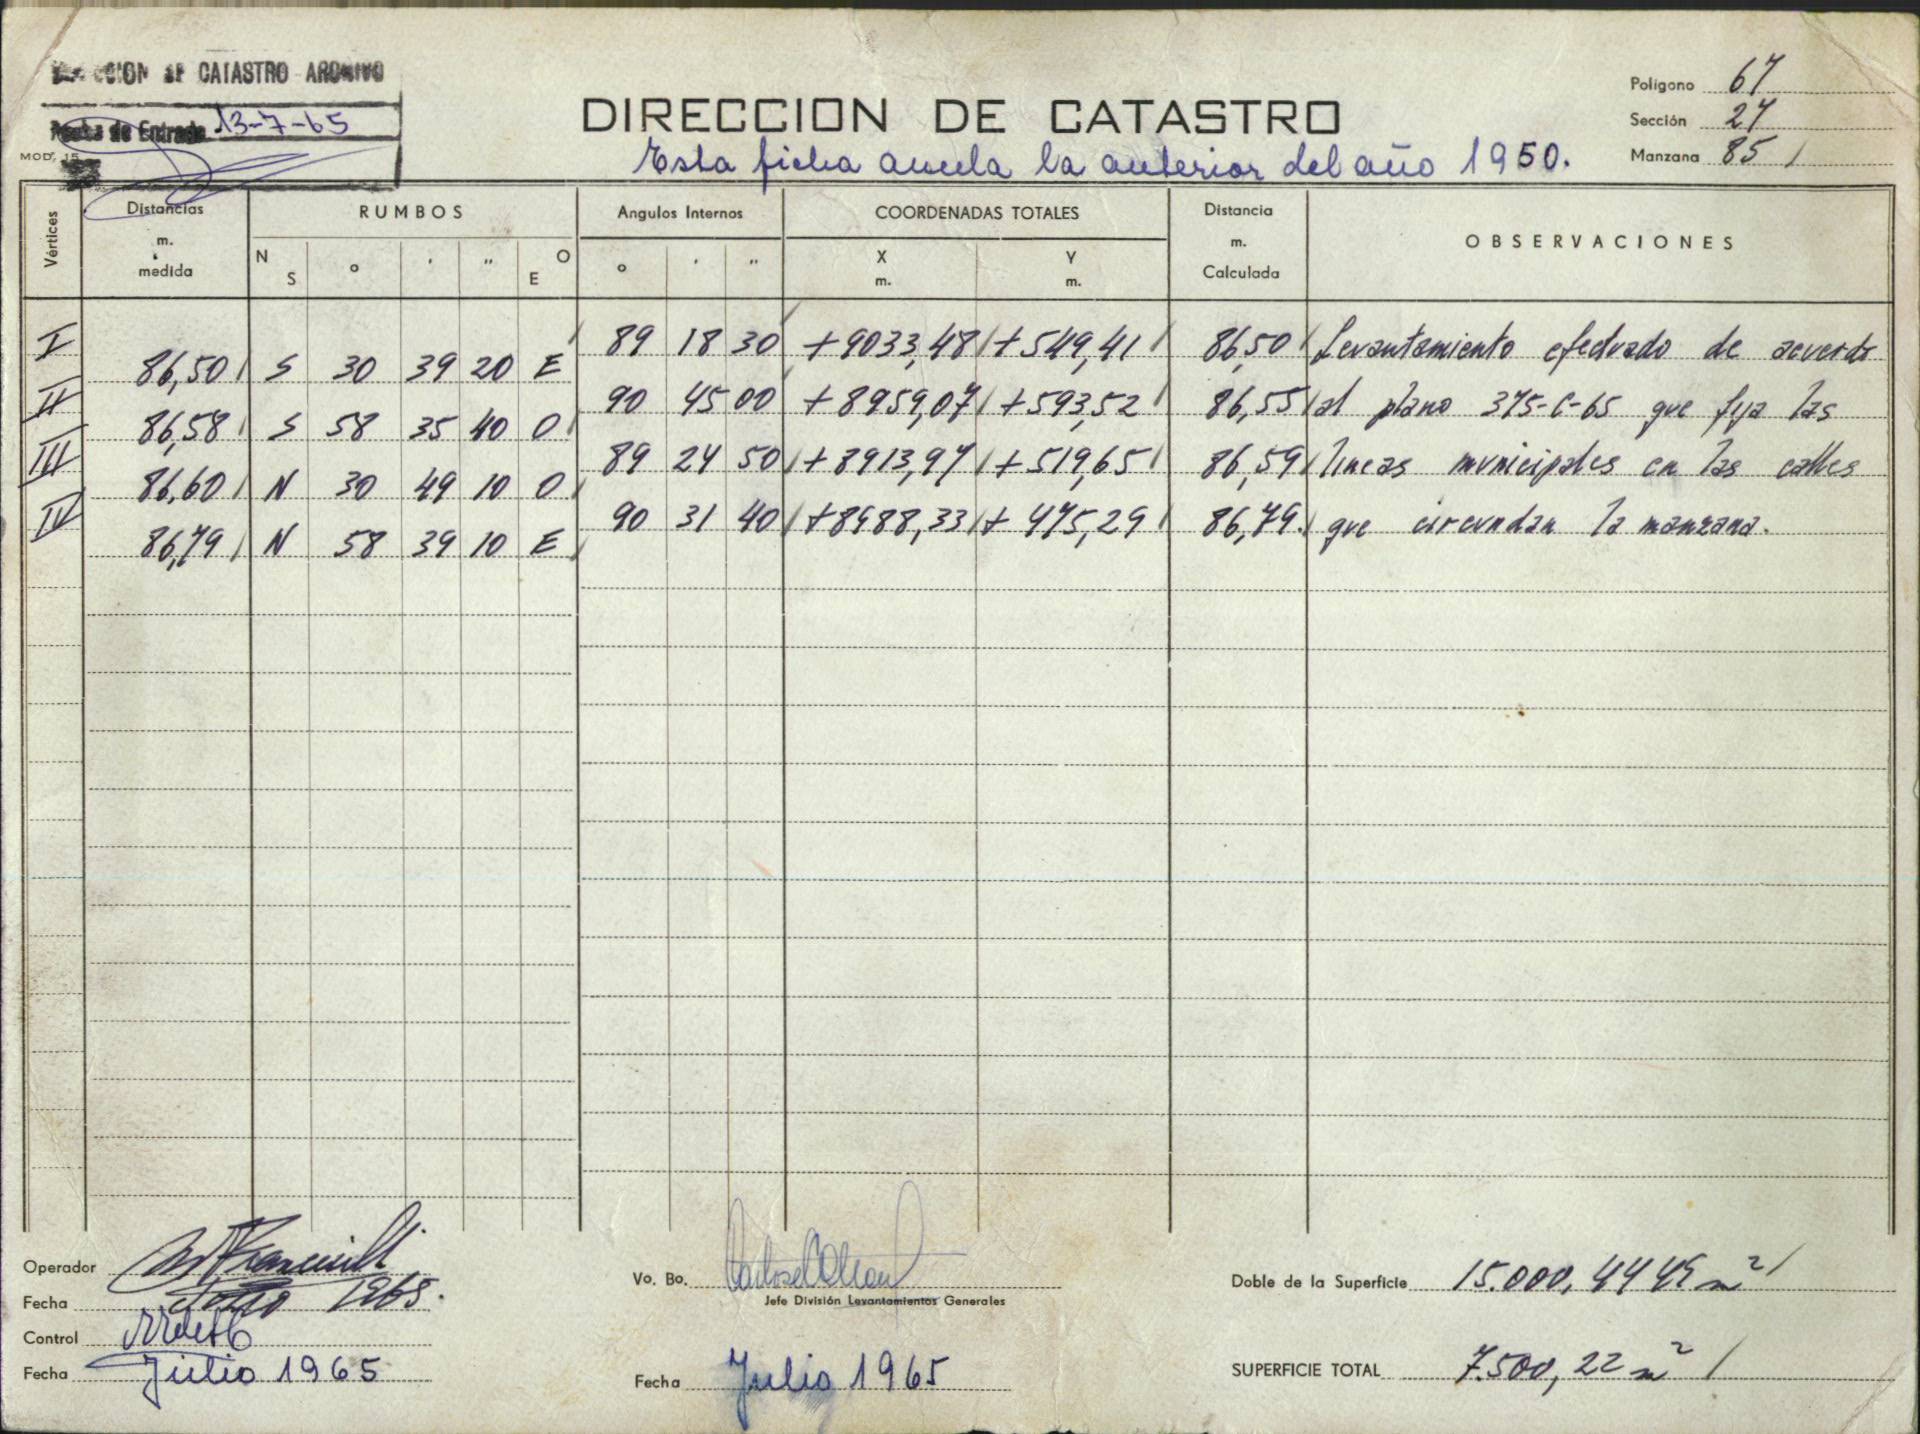 DIRECCION DE CATASTRO ARCHIVO
Fecha de Entrada 13-7-65
MOD. 15
DIRECCION DE CATASTRO
Esta ficha anula la anterior del año 1950.
Polígono 67
Sección 27
Manzana 85
Vértices
Distancias m. medida
RUMBOS
N S ° ' " O E
Angulos Internos
° ' "
COORDENADAS TOTALES
X m. Y m.
Distancia m. Calculada
OBSERVACIONES
I 89 18 30 +9033,48 +549,41 86,50 Levantamiento efectuado de acuerdo
86,50 S 30 39 20 E
II 90 45 00 +8959,07 +593,52 86,55 al plano 375-C-65 que fija las
86,58 S 58 35 40 O
III 89 24 50 +8913,97 +519,65 86,59 lineas municipales en las calles
86,60 N 30 49 10 O
IV 90 31 40 +8988,33 + 475,29 86,79 que circundan la manzana.
86,79 N 58 39 10 E
Operador
Fecha Julio 1965.
Control
Fecha Julio 1965
Vo. Bo.
Jefe División Levantamientos Generales
Fecha Julio 1965
Doble de la Superficie 15.000,4449 m²
SUPERFICIE TOTAL 7.500,22 m²